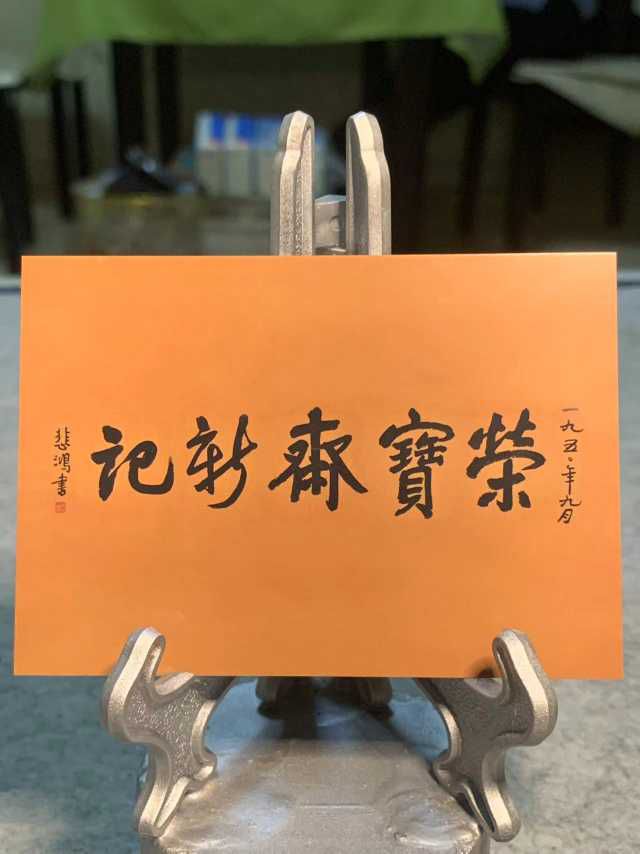 一九五〇年九月
榮寶齋新記
悲鴻書